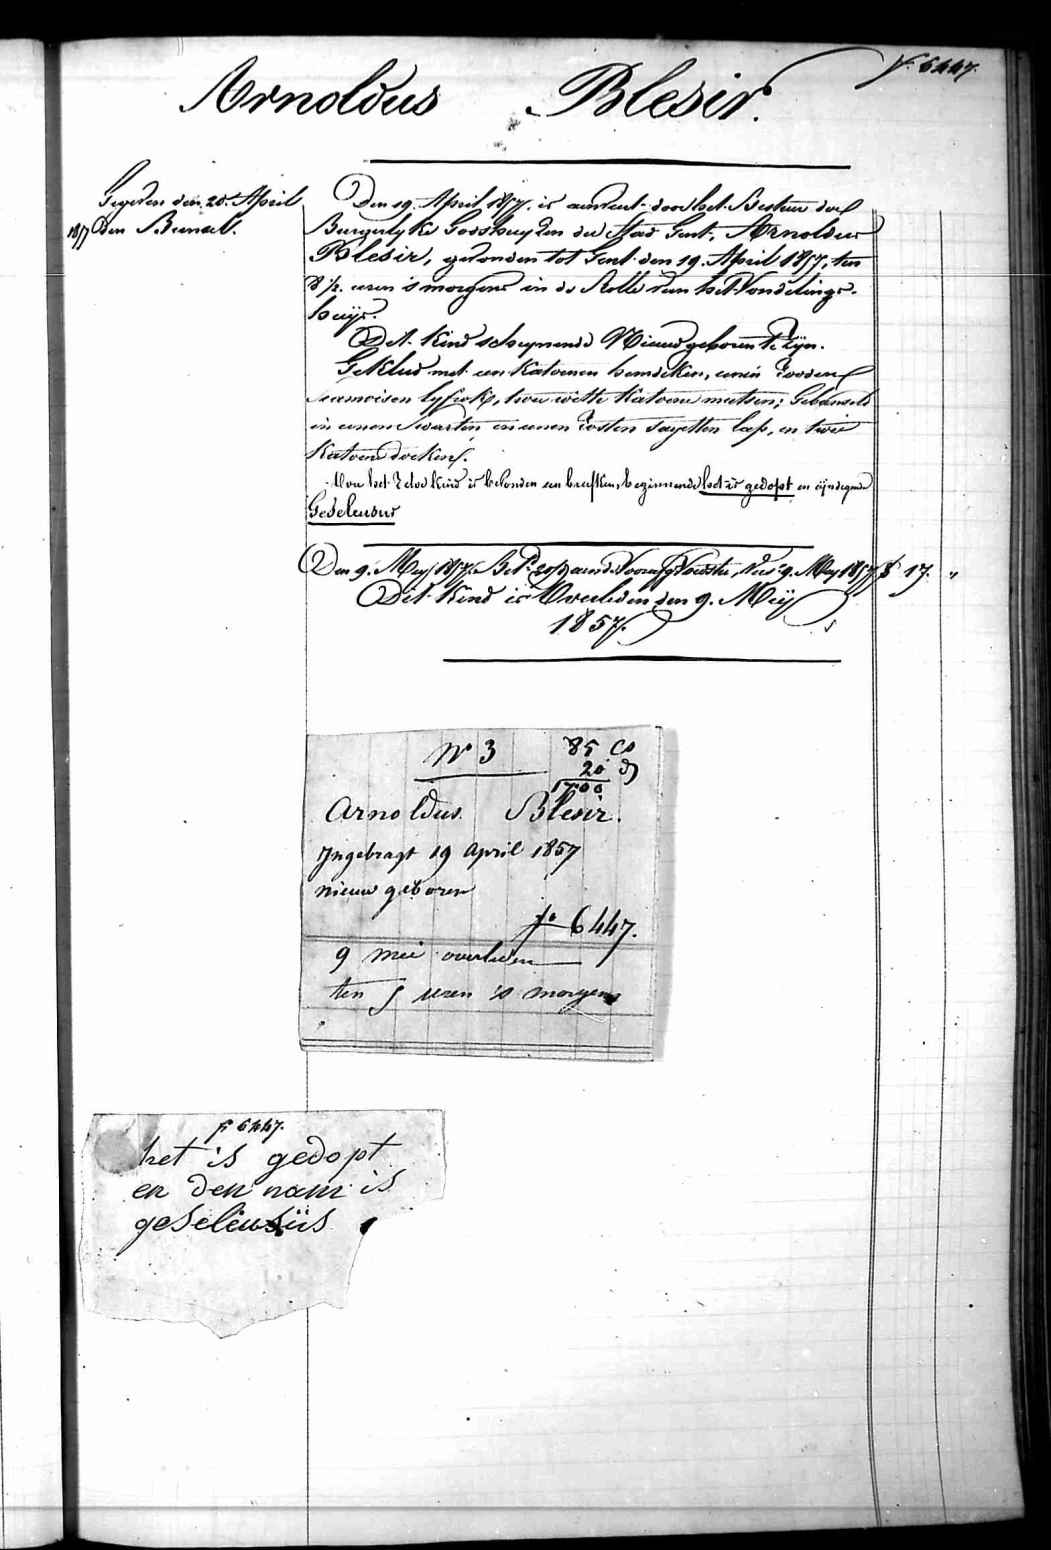 fo 6447.
Arnoldus Blesir.
Gegeven den 20. April
1857 den
Den 19. April 1857. is aenveul door het Bestuer der
Burgerlyke Godshuyzen der Stad Gent, Arnoldus
Blesir, gevonden tot Gent den 19. April 1857, ten
8 1/2. uren 's morgens in de Rolle van het Vondelings-
huys.
Dit Kind schynende Nieuw geboren te zyn.
Gekleed met een Katoenen hemdeken, eenen rooden
siamoisen lyfrok, twee witte Katoene mutsen; Gebonseld
in eenen swarten en eenen rosten sayetten lap, en twee
Katoene doeken.
Van het zelve kind is bevonden een briefken, beginnende het is gedopt en eyndigende
Geseleusus
Den 9. Mey 1857. Bet. 20 Voorzg Voedster, 9. Mey 1857 f 17. "
Dit Kind is Overleden den 9. Meÿ
1857.
No 3 85 Co
20 D
17.00
Arnoldus Blesir.
Jngebragt 19 april 1857
nieuw geboren
fo 6447.
9 mei overleden
ten 5 uren 's morgens
fo 6447.
het is gedopt
en den nam is
geseleusüs